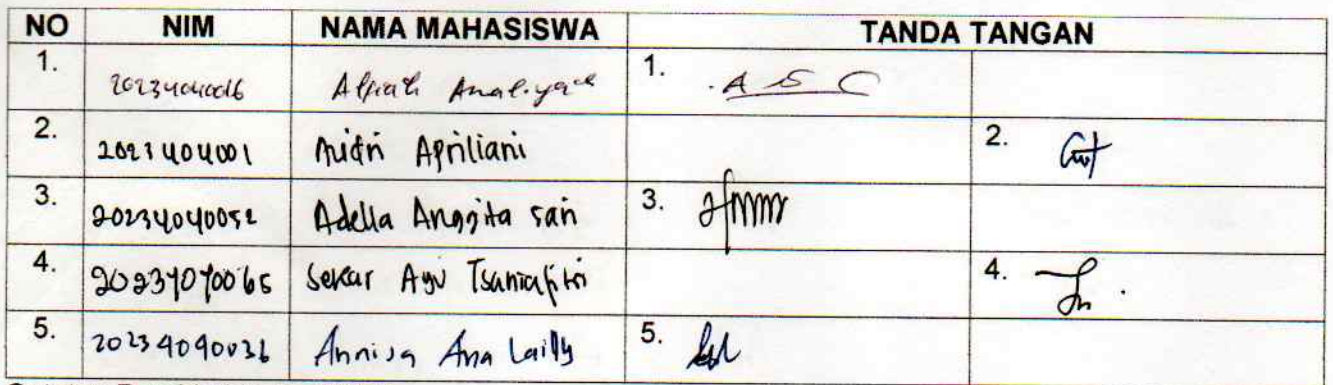 NO NIM NAMA MAHASISWA TANDA TANGAN
1. 20234040016 Alfiah 1.
2. Apriliani 2.
3. 20234040052 Adella Anggita sari 3.
4. 20234040065 Sekar Ayu Tsaniafitri 4.
5. 20234040036 Annisa Ana Lailly 5.